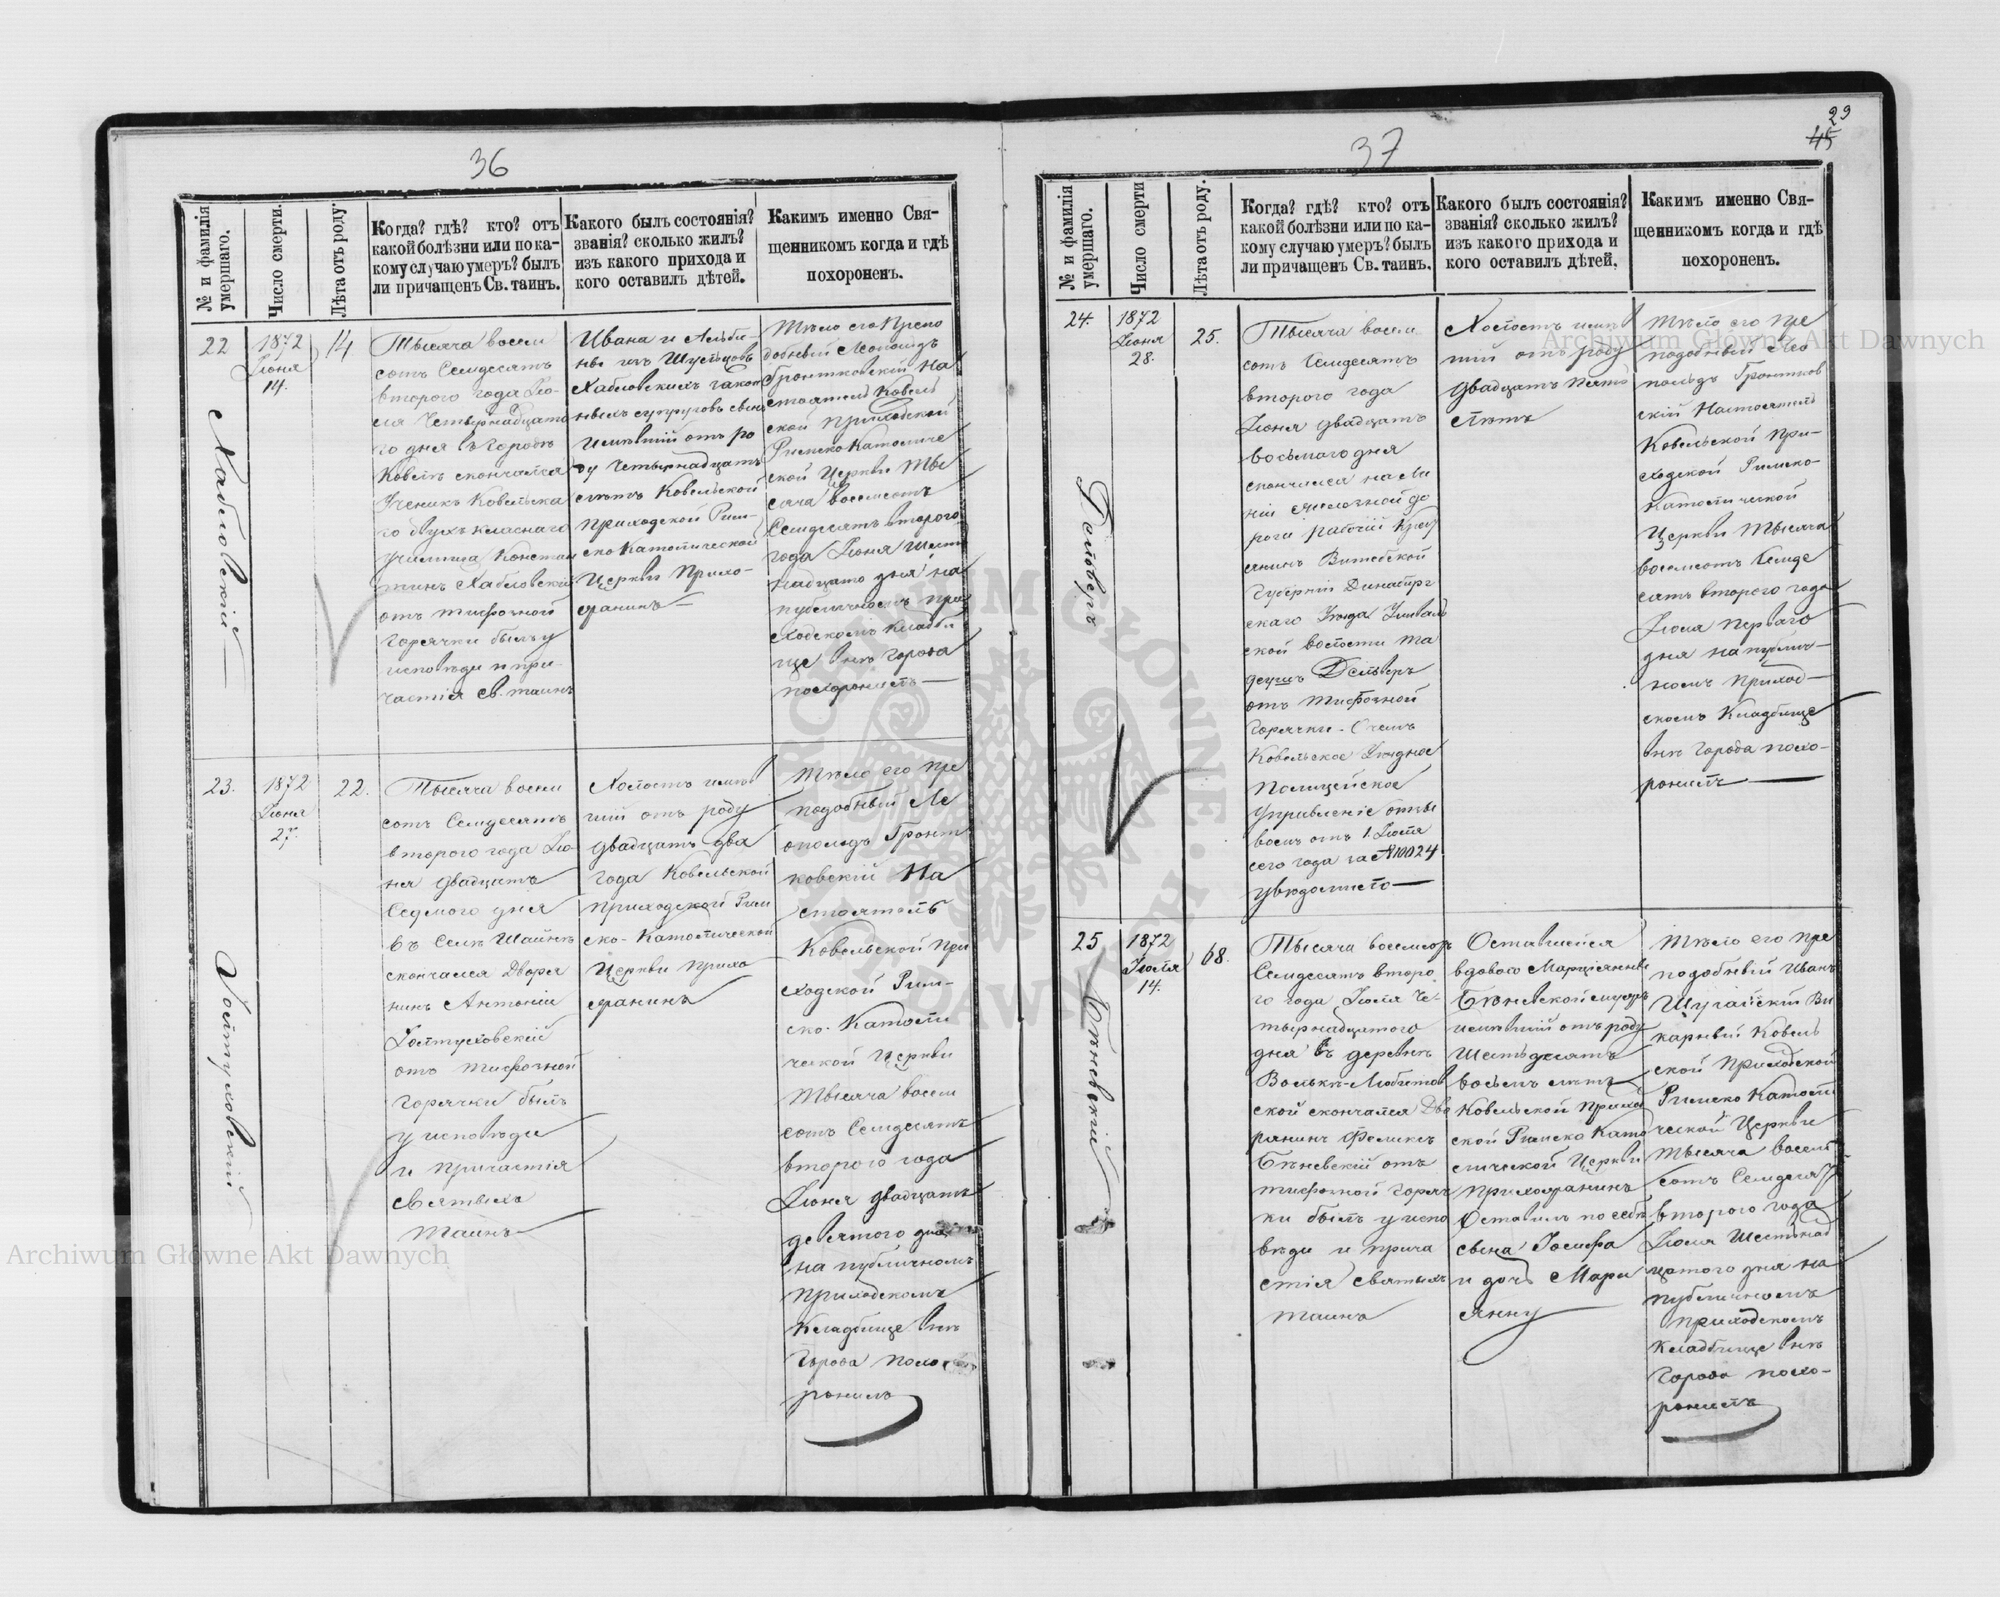 36
№ и фамилія умершаго.
Число смерти.
Лѣта отъ роду.
Когда? гдѣ? кто? отъ
какой болѣзни или по ка-
кому случаю умеръ? былъ
ли причащенъ Св. таинъ.
Какого былъ состоянія?
званія? сколько жилъ?
изъ какого прихода и
кого оставилъ дѣтей.
Какимъ именно Свя-
щенникомъ когда и гдѣ
похороненъ.
22
Хабловскій
1872
Іюня
14.
14
Тысяча восем
сотъ Семдесятъ
втораго года Ію
ня Четырнадцата
го дня въ Городѣ
Ковлѣ скончался
Ученикъ Ковельска
го двухъ класнаго
училища Констан
тинъ Хабловскій
отъ тифозной
горячки былъ у
исповѣди и при-
частія св. таинъ
Ивана и Альби-
ны изъ
Хабловскихъ закон
ныхъ супруговъ сынъ
имѣвшій отъ ро
ду Четырнадцать
лѣтъ Ковельской
приходской Рим-
ско Католической
Церкви Прихо-
жанинъ—
Тѣло его Препо
добный Леопольдъ
Гронтковскій На
стоятель Ковель
ской приходской
Римско Католиче
ской Церкви Ты
сяча восемсотъ
Семдесятъ второго
года Іюня Шест
надцато дня на
публичномъ при
ходскомъ кладби
ще внѣ города
похоронилъ—
23.
Долтуховскій
1872
Іюня
27.
22.
Тысяча восем
сотъ Семдесятъ
второго года Ію
ня двадцатъ
Седмого дня
въ Селѣ Шайнѣ
скончался Дворя
нинъ Антоній
Долтуховскій
отъ тифозной
горячки былъ
у исповѣди
и причастія
святыхъ
таинъ
Холостъ имѣв
шій отъ роду
двадцать два
года Ковельской
приходской Рим
ско-Католической
Церкви прихо
жанинъ
Тѣло его пре
подобный Ле
опольдъ Гронт
ковскій На
стоятель
Ковельской при
ходской Рим-
ско. Католи
ческой Церкви
Тысяча восем
сотъ Семдесятъ
второго года
Іюня двадцатъ
девятого дня
на публичномъ
приходскомъ
Кладбище внѣ
Города похо
ронилъ
37
29
45
№ и фамилія умершаго.
Число смерти
Лѣта отъ роду.
Когда? гдѣ? кто? отъ
какой болѣзни или по ка-
кому случаю умеръ? былъ
ли причащенъ Св. таинъ.
Какого былъ состоянія?
званія? сколько жилъ?
изъ какого прихода и
кого оставилъ дѣтей.
Какимъ именно Свя-
щенникомъ когда и гдѣ
похороненъ.
24.
1872
Іюня
28.
25.
Тысяча восем
сотъ Семдесятъ
второго года
Іюня двадцатъ
восьмаго дня
скончился на Ли
ніи желѣзной до
роги рабочій Крес
янинъ Витебской
Губерніи Динабург
скаго Уѣзда
ской волости Та
деушъ
отъ тифозной
горячки. О чемъ
Ковельское Уѣздное
Полицейское
Управленіе отзы
вомъ отъ 1. Іюля
сего года за №10024
увѣдомило—
Холостъ имѣв
шій отъ роду
двадцать пять
лѣтъ
Тѣло его пре
подобный Лео
польдъ Гронтков
скій Настоятель
Ковельской при-
ходской Римско-
Католической
Церкви Тысяча
восемсотъ Семде
сятъ второго года
Іюля перваго
дня на публич-
номъ приход-
скомъ Кладбище
внѣ города похо-
ронилъ—
25
Бѣневскій
1872
Іюля
14.
68.
Тысяча восемсотъ
Семдесятъ второ
го года Іюля Че-
тырнадцатого
дня въ деревнѣ
Волькѣ-Любитов
ской скончался Дво
рянинъ Феликсъ
Бѣневскій отъ
тифозной горяч
ки былъ у испо
вѣди и прича
стія святыхъ
таинъ
Оставшейся
вдового Марціянны
Бѣневской мужъ
имѣвшій отъ роду
Шестьдесятъ
восьемъ лѣтъ
Ковельской Приход
ской Римско Като
лической Церкви
прихожанинъ
Оставилъ по себѣ
сына Іосифа
и дочь Мари
янну
Тѣло его пре
подобный Иванъ
Шугайскій Ви
карный Ковель
ской Приходской
Римско Католи
ческой Церкви
Тысяча восем
сотъ Семдеся
второго года
Іюля Шестнад
цатого дня на
публичномъ
приходскомъ
Кладбище внѣ
Города похо-
ронилъ
Archiwum Główne Akt Dawnych
Archiwum Główne Akt Dawnych